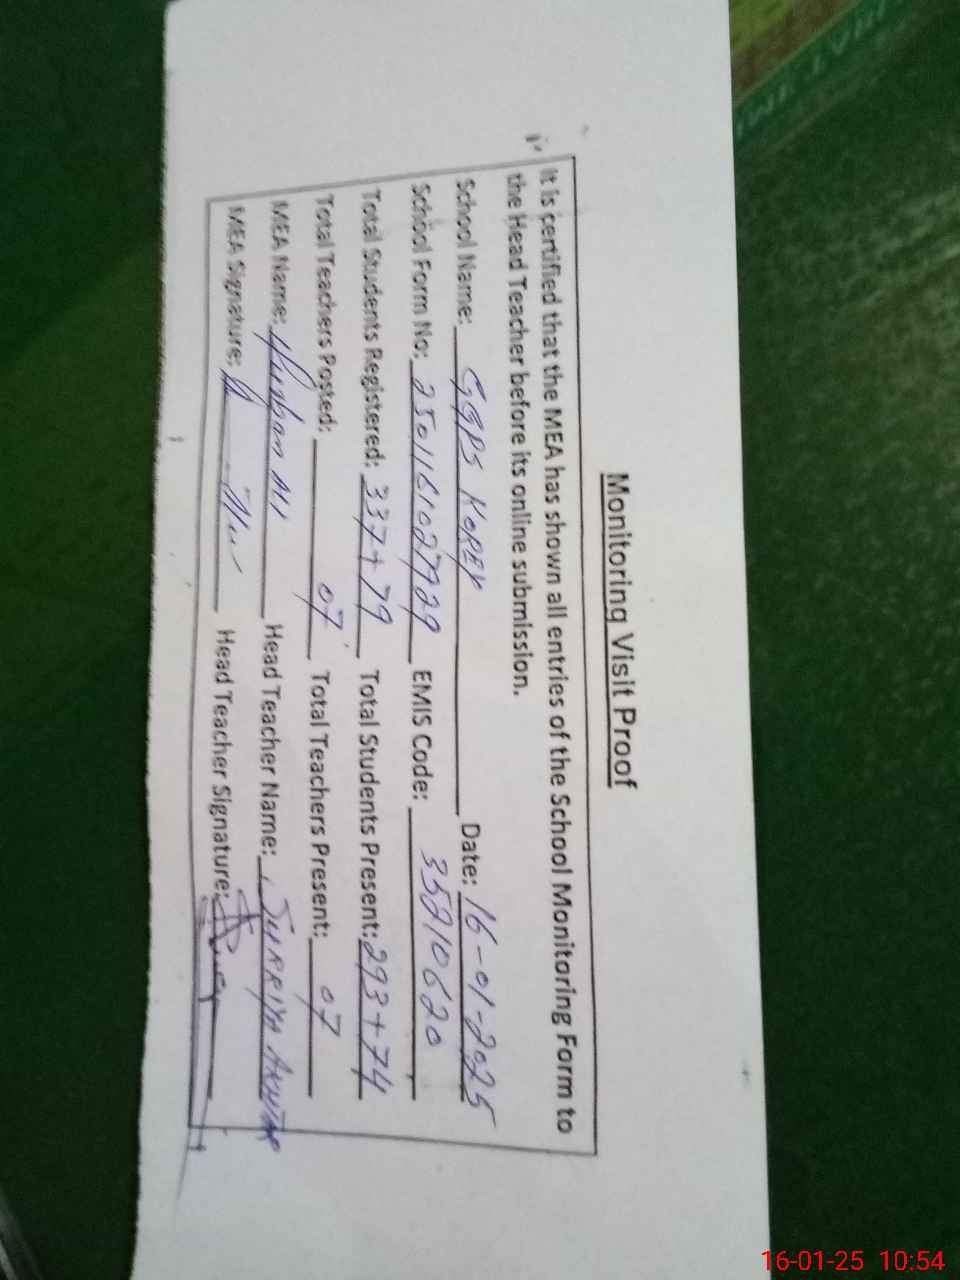 Monitoring Visit Proof
It is certified that the MEA has shown all entries of the School Monitoring Form to
the Head Teacher before its online submission.
School Name: GGPS KOREY Date: 16-01-2025
School Form No: 2501161027729 EMIS Code: 35210620
Total Students Registered: 337+79 Total Students Present: 293+74
Total Teachers Posted: 07 Total Teachers Present: 07
MEA Name: Ali Head Teacher Name: AKHTAR
MEA Signature: Head Teacher Signature:
16-01-25 10:54